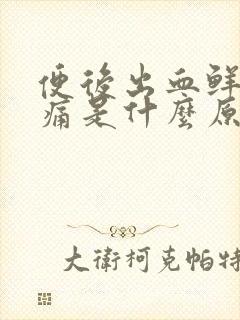 便後出血鮮
痛是什麼原
大衛柯克帕特